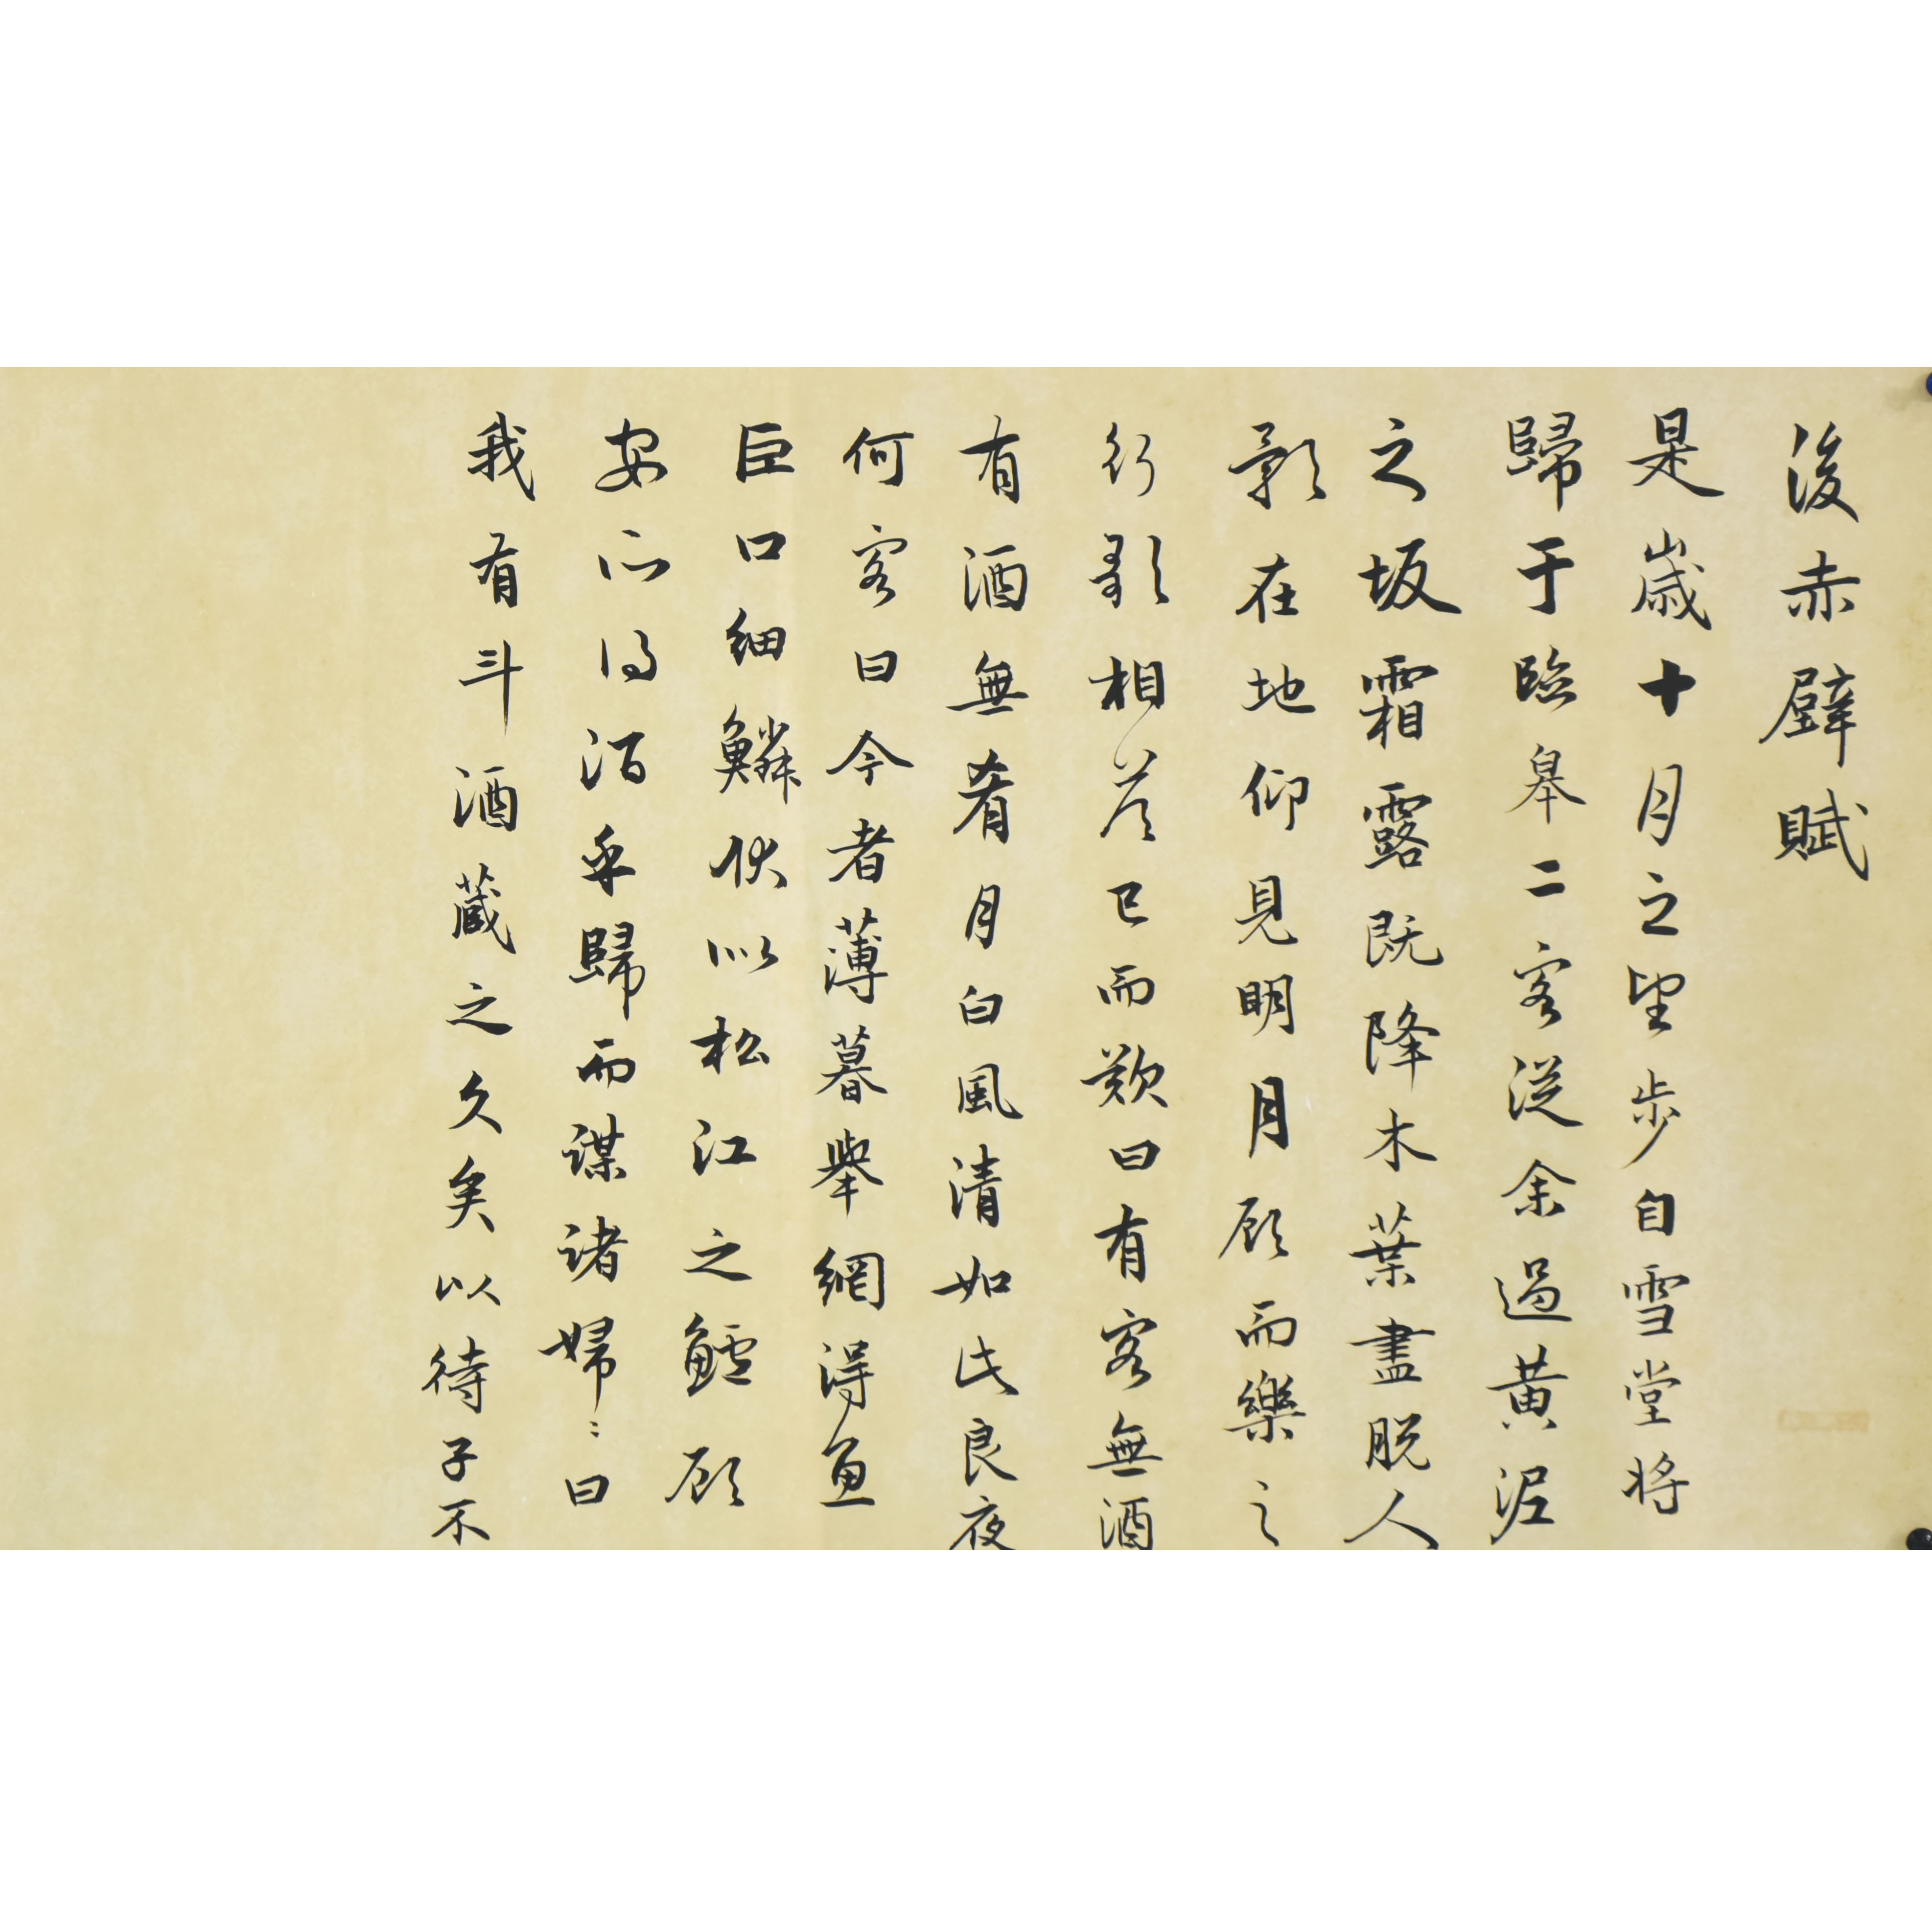 後赤壁賦
是歲十月之望步自雪堂將
歸于臨皋二客從余過黃泥
之坂霜露既降木葉盡脫人
影在地仰見明月顧而樂之
行歌相答已而歎曰有客無酒
有酒無肴月白風清如此良夜
何客曰今者薄暮舉網得魚
巨口細鱗狀似松江之鱸顧
安所得酒乎歸而謀諸婦＝曰
我有斗酒藏之久矣以待子不